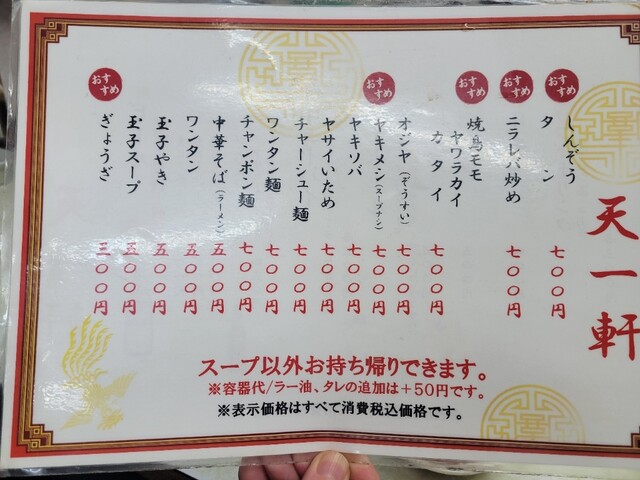 天一軒
おすすめ
しんぞう
タン 七〇〇円
おすすめ
ニラレバ炒め 七〇〇円
おすすめ
焼鳥モモ
ヤワラカイ
カタイ 七〇〇円
オジヤ(ぞうすい) 七〇〇円
おすすめ
ヤキメシ(スープナシ) 七〇〇円
ヤキソバ 七〇〇円
ヤサイいため 七〇〇円
チャーシュー麺 七〇〇円
ワンタン麺 七〇〇円
チャンポン麺 七〇〇円
中華そば(ラーメン) 五〇〇円
ワンタン 五〇〇円
玉子やき 五〇〇円
玉子スープ 五〇〇円
おすすめ
ぎょうざ 三〇〇円
スープ以外お持ち帰りできます。
※容器代/ラー油、タレの追加は+50円です。
※表示価格はすべて消費税込価格です。